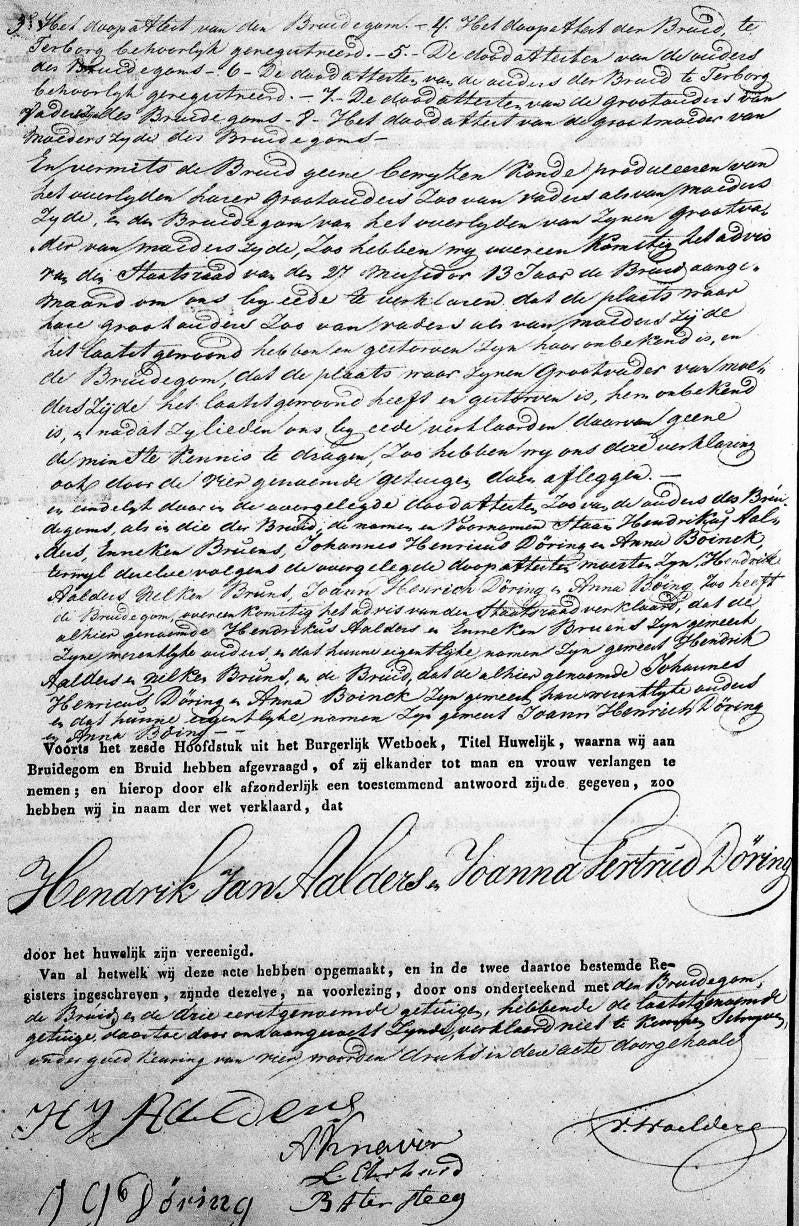 3. Het doopattest van den Bruidegom. – 4. Het doopattest der Bruid, te
Terborg behoorlijk geregistreerd. – 5. – De doodattesten van de ouders
des Bruidegoms – 6 – De doodattesten van de ouders der Bruid te Terborg
behoorlijk geregistreerd. – 7. – De doodattesten van de grootouders van
Vaderszyde des Bruidegoms – 8 – Het doodattest van de grootmoeder van
moeders zyde des Bruidegoms –
En vermits de Bruid geene bewyzen konde produceeren van
het overlyden harer grootouders Zoo van vaders als van moeders
Zyde, en de Bruidegom van het overlyden van Zynen Grootva-
der van moeders zyde, Zoo hebben wy overeenkomstig het advis
van den Staatsraad van den 27 Messidor 13 Jaar de Bruid aange-
maand om ons by eede te verklaren dat de plaats waar
hare grootouders Zoo van vaders als van moeders Zijde
het laatst gewoond hebben en gestorven Zyn haar onbekend is, en
de Bruidegom, dat de plaats waar Zynen Grootvader van moe-
ders Zijde het laatst gewoond heeft en gestorven is, hem onbekend
is, en nadat Zylieden ons by eede verklaarden daarvan geene
de minste Kennis te dragen, Zoo hebben wy ons deze verklaring
ook door de vier genoemde getuigen doen afleggen. –
en eindelyk daar in de overgelegde doodattesten Zoo van de ouders des Brui-
degoms, als in die der Bruid, de namen en Voornamen Staan Hendrikus Aal-
ders, Enneken Bruens, Johannes Henricus Döring en Anna Boinck,
terwyl dezelve volgens de overgelegde doopattesten moesten Zyn, Hendrik
Aalders, Nelken Bruns, Joann Henrich Döring en Anna Böing, Zoo heeft
de Bruidegom, overeenkomstig het advis van den Staatsraad verklaard, dat de
alhier genoemde Hendrikus Aalders en Enneken Bruens Zyn geweest
Zyne wezentlyke ouders, en dat hunne eigentlyke namen Zyn geweest Hendrik
Aalders en Nelken Bruns, en de Bruid, dat de alhier genoemde Johannes
Henricus Döring en Anna Boinck Zyn geweest, hare wezentlyke ouders
en dat hunne eigentlyke namen Zyn geweest Joann Henrich Döring
en Anna Böing – –
Voorts het zesde Hoofdstuk uit het Burgerlijk Wetboek, Titel Huwelijk, waarna wij aan
Bruidegom en Bruid hebben afgevraagd, of zij elkander tot man en vrouw verlangen te
nemen; en hierop door elk afzonderlijk een toestemmend antwoord zijnde gegeven, zoo
hebben wij in naam der wet verklaard, dat
Hendrik Jan Aalders en Joanna Gertrud Döring
door het huwelijk zijn vereenigd.
Van al hetwelk wij deze acte hebben opgemaakt, en in de twee daartoe bestemde Re-
gisters ingeschreven, zijnde dezelve, na voorlezing, door ons onderteekend met den Bruidegom,
de Bruid en de drie eerstgenoemde getuigen, hebbende de laatstgenoemde
getuige, daartoe door ons aangezocht Zynde, verklaard niet te kennen Schryven,
onder goed keuring van vier woorden druks in deze acte doorgehaald
H J Aalders
J G Döring
L. Ehrhard
B ter Steeg